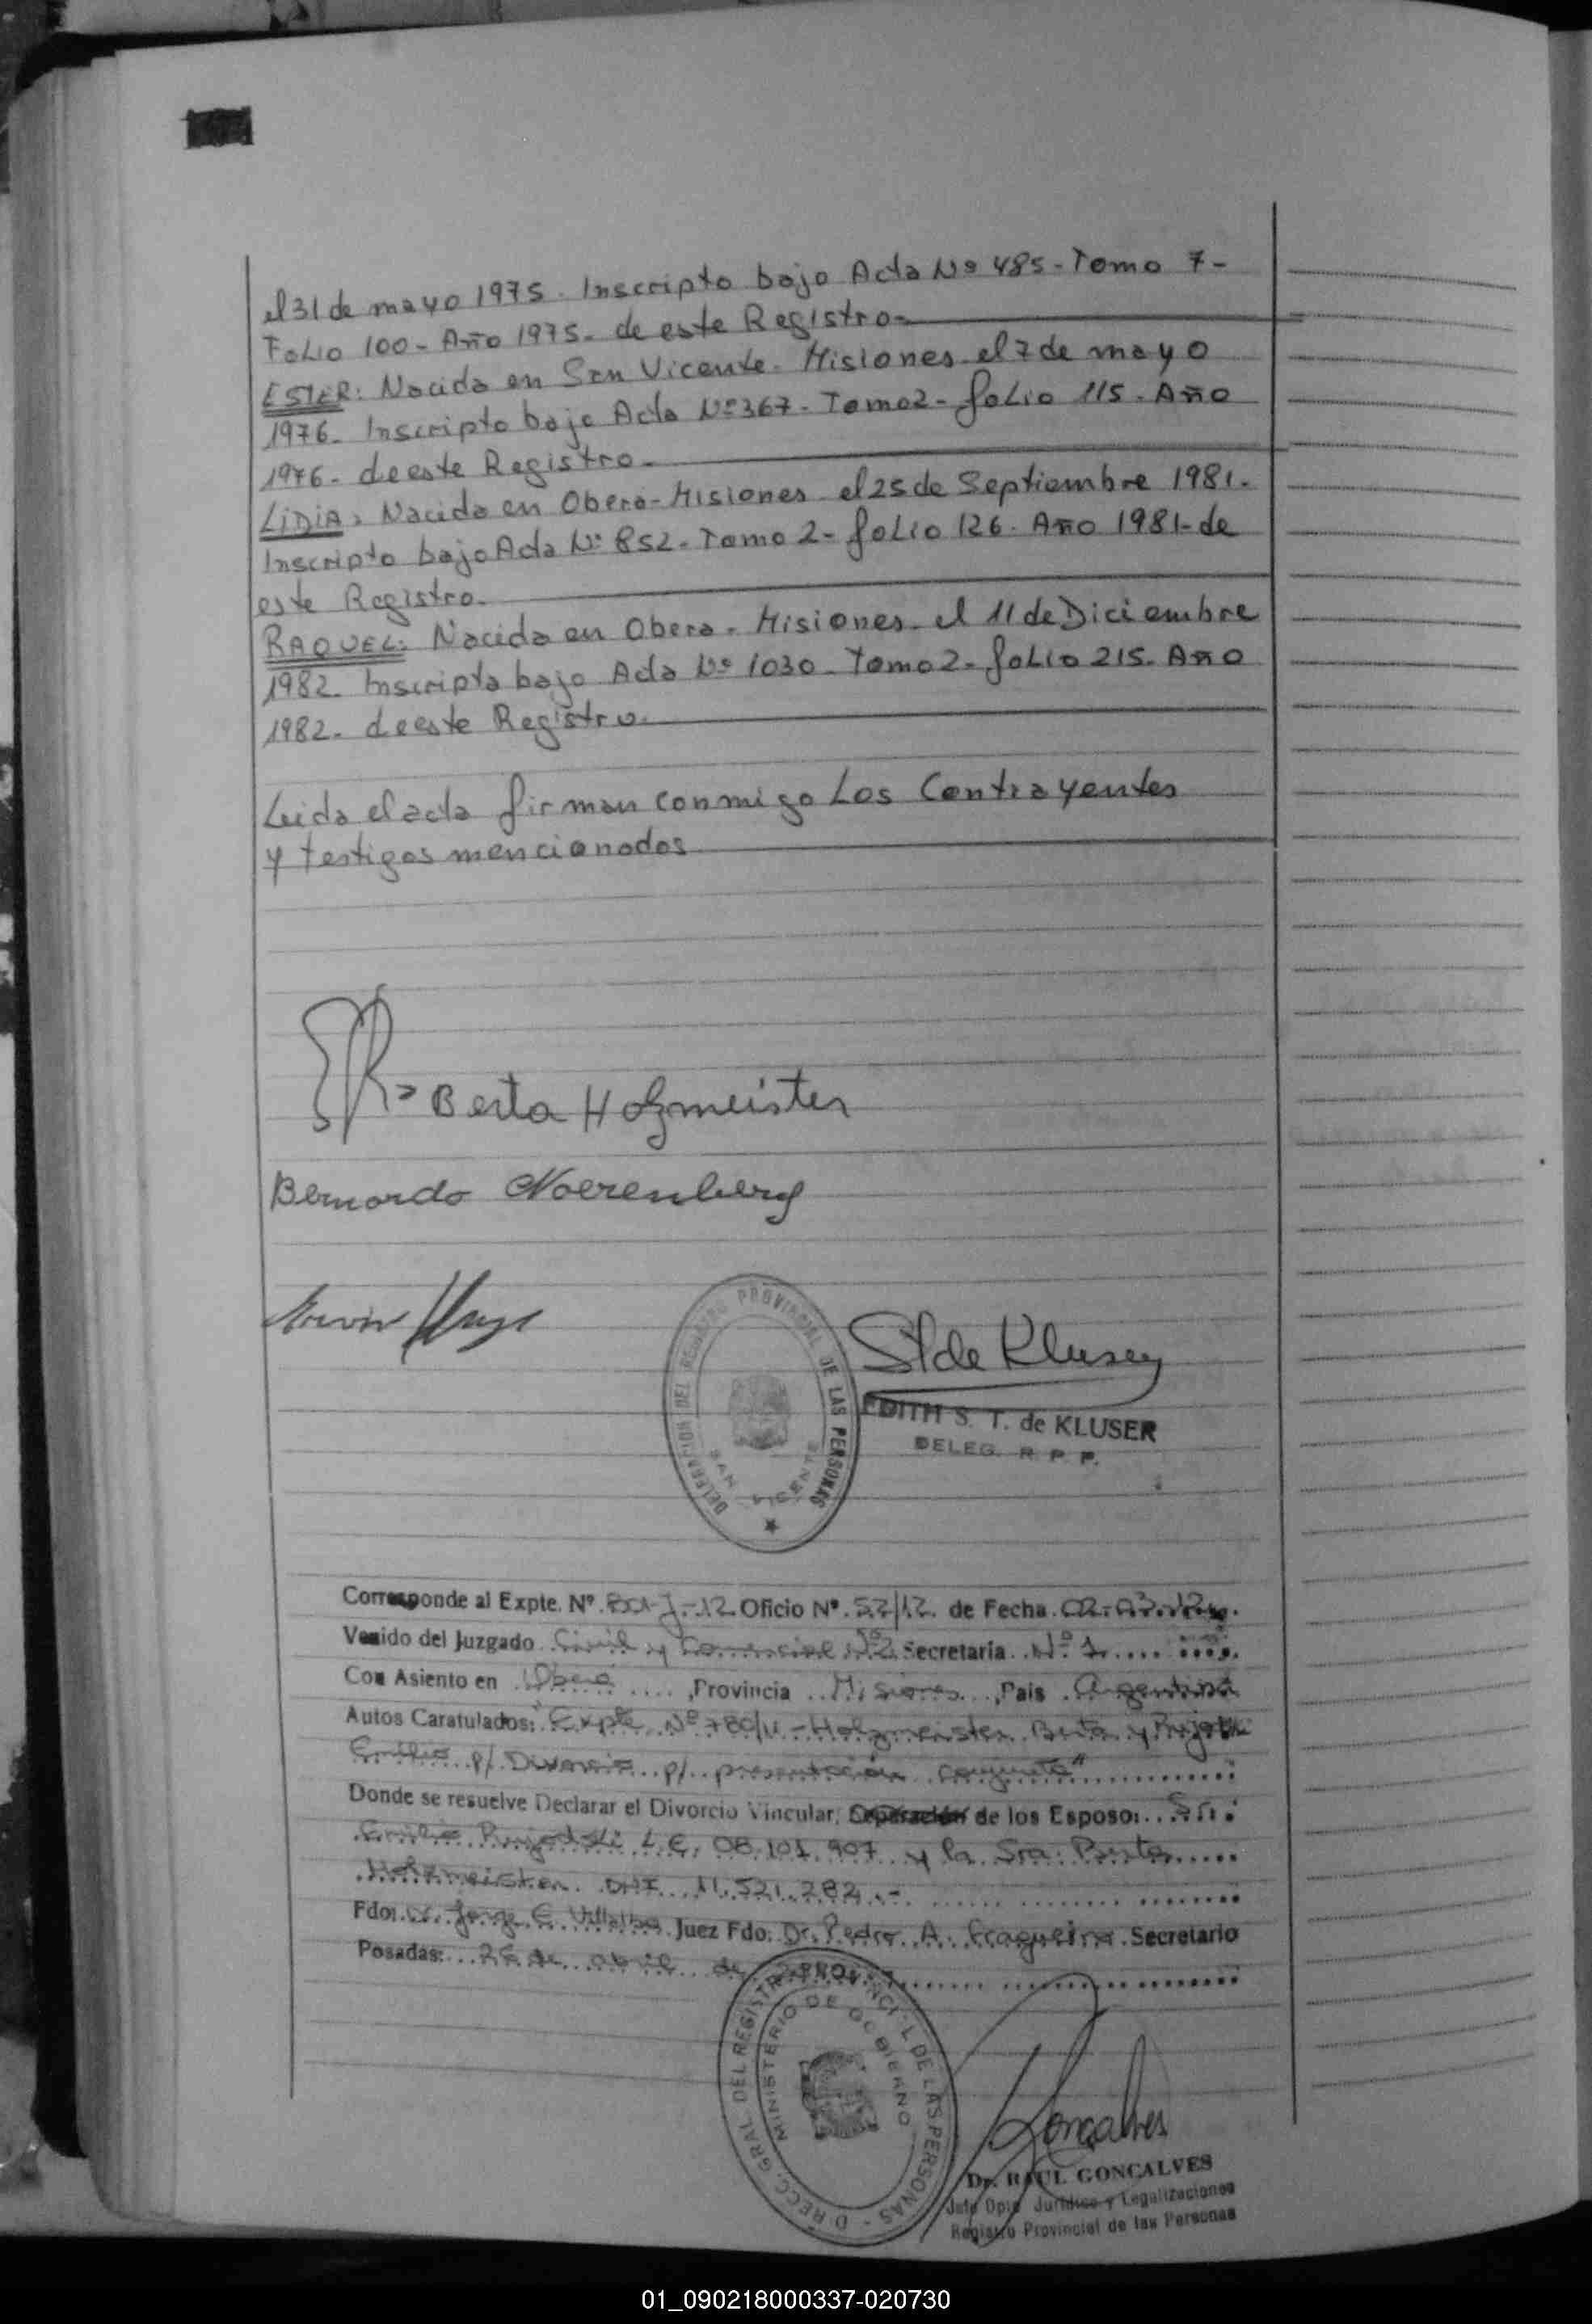 el 31 de mayo 1975. Inscripto bajo Acta Nº 485-Tomo 7-
Folio 100- Año 1975- de este Registro-
ESTER: Nacida en San Vicente- Misiones- el 7 de mayo
1976- Inscripto bajo Acta Nº 367- Tomo 2- folio 115- Año
1976- de este Registro-
LiDiA: Nacida en Obera-Misiones- el 25 de Septiembre 1981-
Inscripto bajo Acta Nº 852- Tomo 2- folio 126- Año 1981-de
este Registro-
RAQUEL: Nacida en Obera- Misiones- el 11 de Diciembre
1982- Inscripta bajo Acta Nº 1030- Tomo 2- folio 215- Año
1982- de este Registro-
Leida el acta firman conmigo Los Contrayentes
y testigos mencionados
Berta Holzmeister
Bernardo Noerenberg
DELEGACION DEL REGISTRO PROVINCIAL DE LAS PERSONAS
SAN VICENTE
S T de Kluser
EDITH S. T. de KLUSER
DELEG. R. P. P.
Corresponde al Expte. Nº J-12 Oficio Nº 52/12 de Fecha 02-03-12
Venido del Juzgado Civil y Comercial Nº 2 Secretaria Nº 1
Con Asiento en Oberá, Provincia Misiones, Pais Argentina
Autos Caratulados: "Expte Nº 780/11 - Holzmeister Berta y
Emilio p/ Divorcio p/ presentación conjunta"
Donde se resuelve Declarar el Divorcio Vincular, Separación de los Esposo: Sr.
Emilio L.E. 08.101.907 y la Sra. Berta
Holzmeister DNI 11.521.282.-
Fdo: Dr. Jorge E. Villalba Juez Fdo: Dr. Pedro A. Fragueiro Secretario
Posadas: 26 de abril de
DIRECC. GRAL. DEL REGISTRO PROVINCIAL DE LAS PERSONAS -
MINISTERIO DE GOBIERNO
Goncalves
Dr. RAUL GONCALVES
Jefe Dpto. Jurídico y Legalizaciones
Registro Provincial de las Personas
01_090218000337-020730